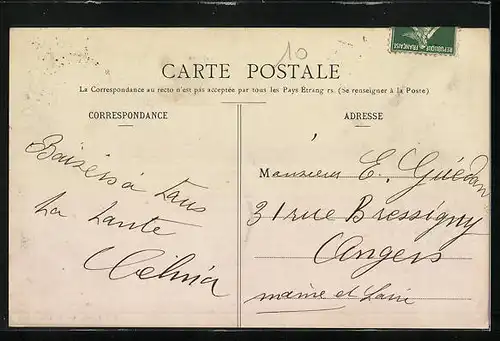 RÉPUBLIQUE FRANÇAISE
10
CARTE POSTALE
La Correspondance au recto n'est pas acceptée par tous les Pays Étrang rs. (Se renseigner à la Poste)
CORRESPONDANCE
Baisers à tous
ta tante
ADRESSE
Monsieur E. Guédan
31 rue Bressigny
Angers
maine et Loire